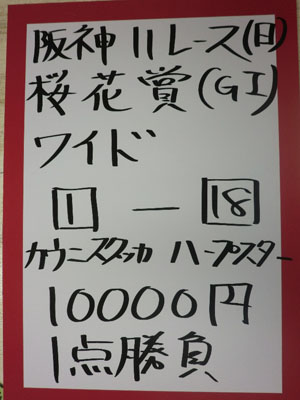 阪神11レース(日)
桜花賞(GI)
ワイド
1 ― 18
カウニスタッカ ハープスター
10000円
1点勝負